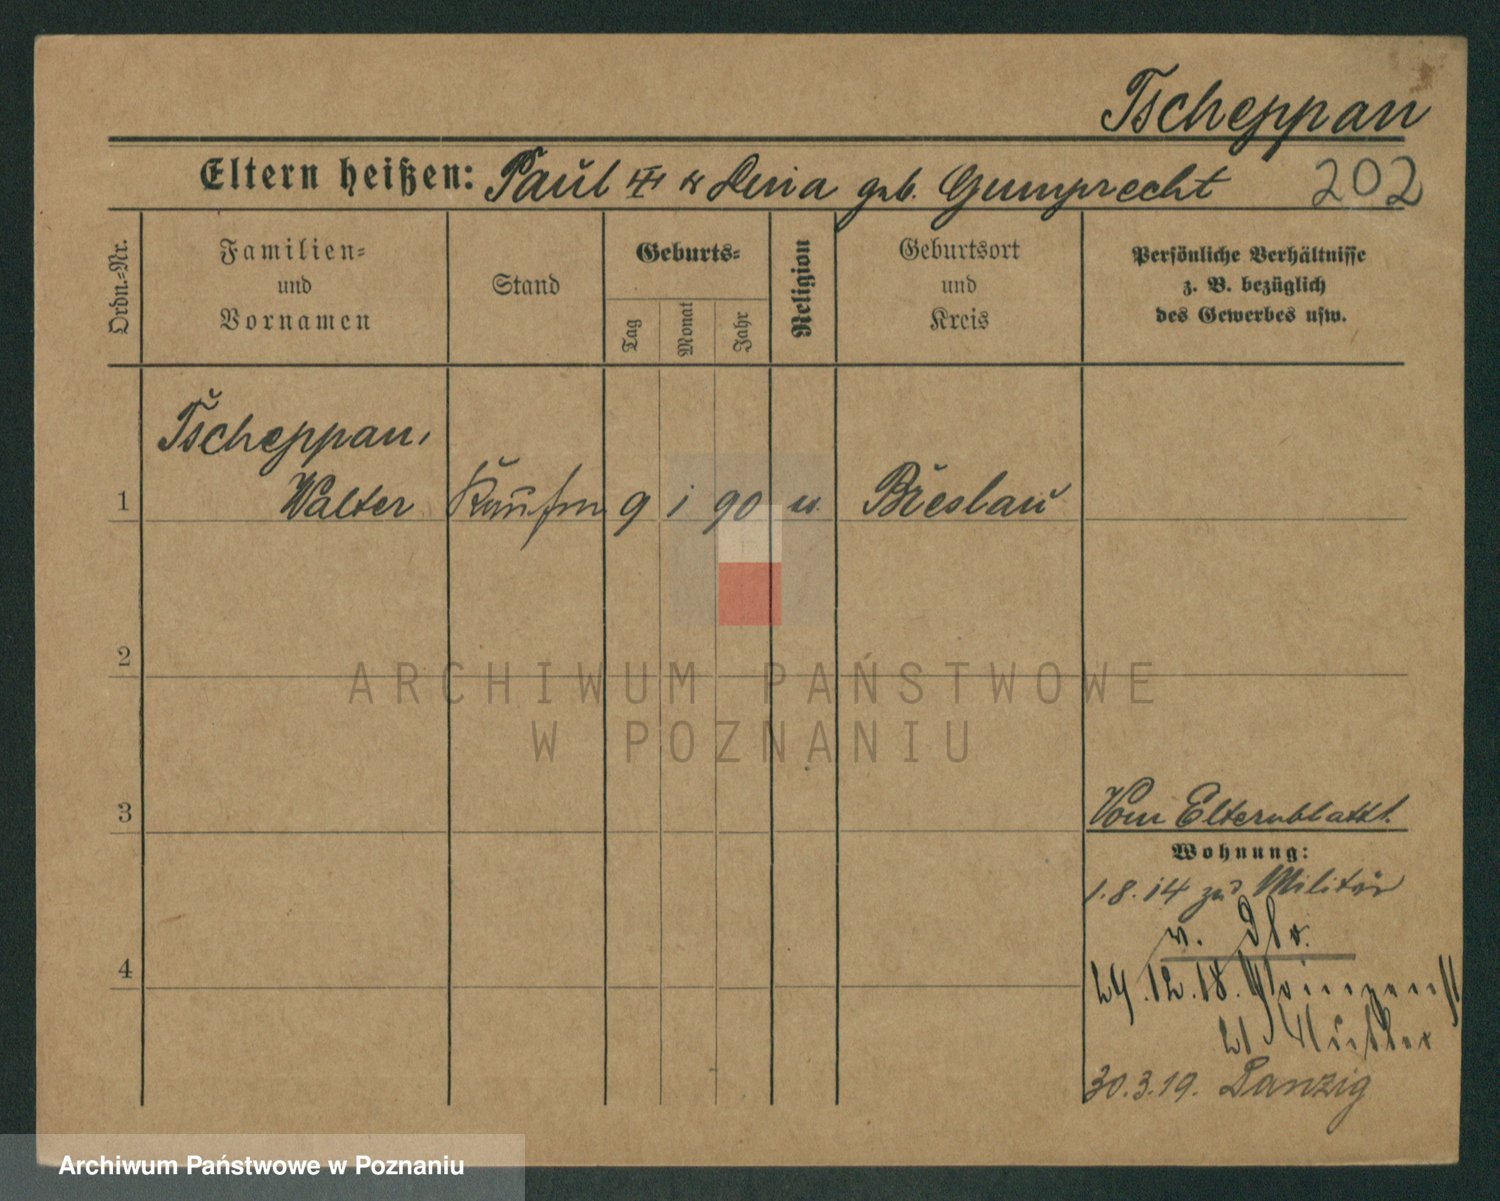 Tscheppan
Eltern heißen: Paul u geb. Gumprecht 202
Ordn.-Nr.
Familien-
und
Vornamen
Stand
Geburts-
Tag
Monat
Jahr
Religion
Geburtsort
und
Kreis
Persönliche Verhältnisse
z. B. bezüglich
des Gewerbes usw.
Tscheppan,
1 Walter Kaufm 9 1 90 Breslau
2
ARCHIWUM PAŃSTWOWE
W POZNANIU
3
Vom Elternblatt.
Wohnung:
1.8.14 zum Militär
v. Dbr.
4
29.12.18.
21 Mutter
30.3.19. Danzig
Archiwum Państwowe w Poznaniu